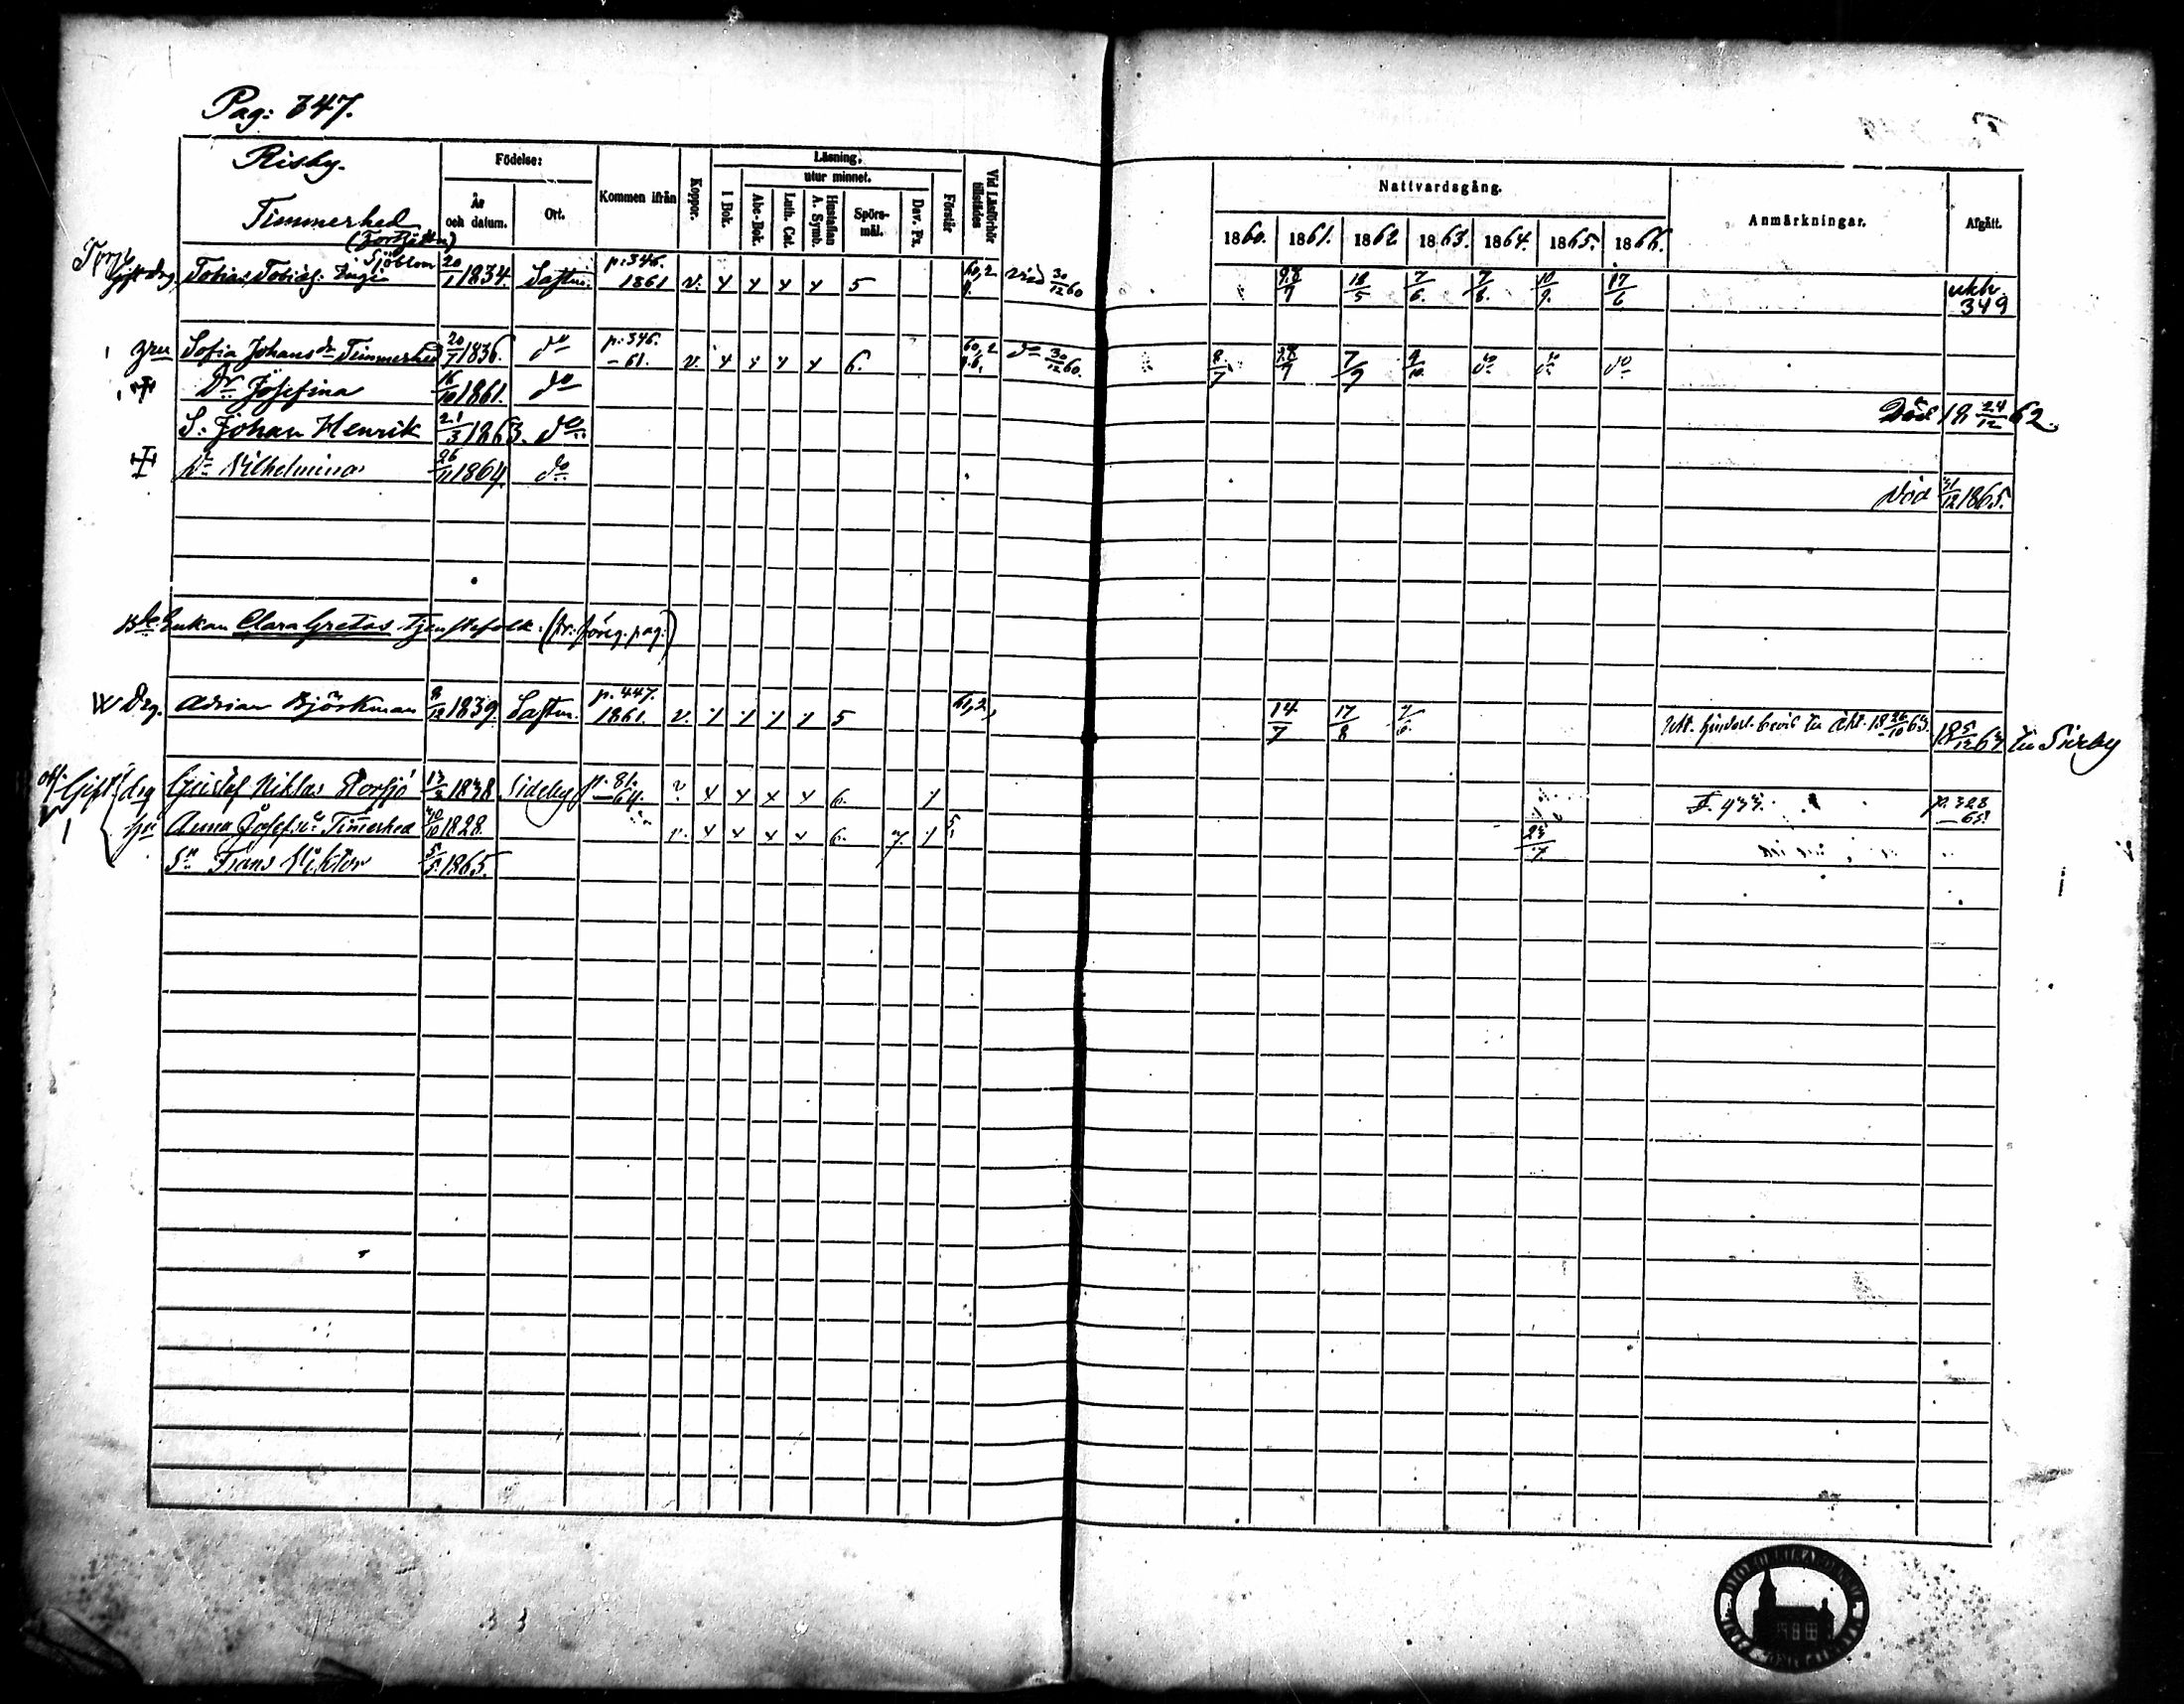 Pag: 347.
Risby.
Timmerhed
(Fortsättn)
Födelse:
År och datum.
Ort.
Kommen ifrån
Koppor.
Läsning.
I Bok.
utur minnet.
Abc-Bok.
Luth. Cat.
Hustaflan A. Symb.
Spörs-mål.
Dav. Ps.
Förstår
Vid Läsförhör tillstädes
Nattvardsgång.
1860. 1861. 1862 1863. 1864. 1865. 1866.
Anmärkningar.
Afgått.
Sjöblom
Gift drg. Tobias Tobias: 20/1 1834. Lastm: p: 346. 1861 v. 5 60,2 vid 30/12 60 28/9 18/5 7/6. 7/8. 10/9. 17/6 ukh. 349
Sofia Johans dr Timmerhed 20/7 1836. do p: 346. -61. v. 6. do 30/12 60. 8/7 28/9 7/9 9/10. do do do
Dr Josefina 16/10 1861. do Död 18 24/12 62.
S: Johan Henrik 21/3 1863. do
Dr Vilhelmina 26/11 1864. do Död 31/12 1865.
Enkan Clara Gretas Tjenstefolk. (fr: föreg. pag:)
W Drg. Adrian Björkman 8/12 1839. Lastm. p. 447. 1861. v. 5 61,2, 14/7 17/8 7/6. 18 5/12 63 Sieby
Gift drg Gustaf Niklas Storsjö 13/3 1838. Sideby p. 81. -64. v. 6. p. 328 -65.
Anna Josef: dr Timmerhed 30/10 1828. v. 6. 7. 23/7.
Sn Frans Viktor 5/5. 1865.